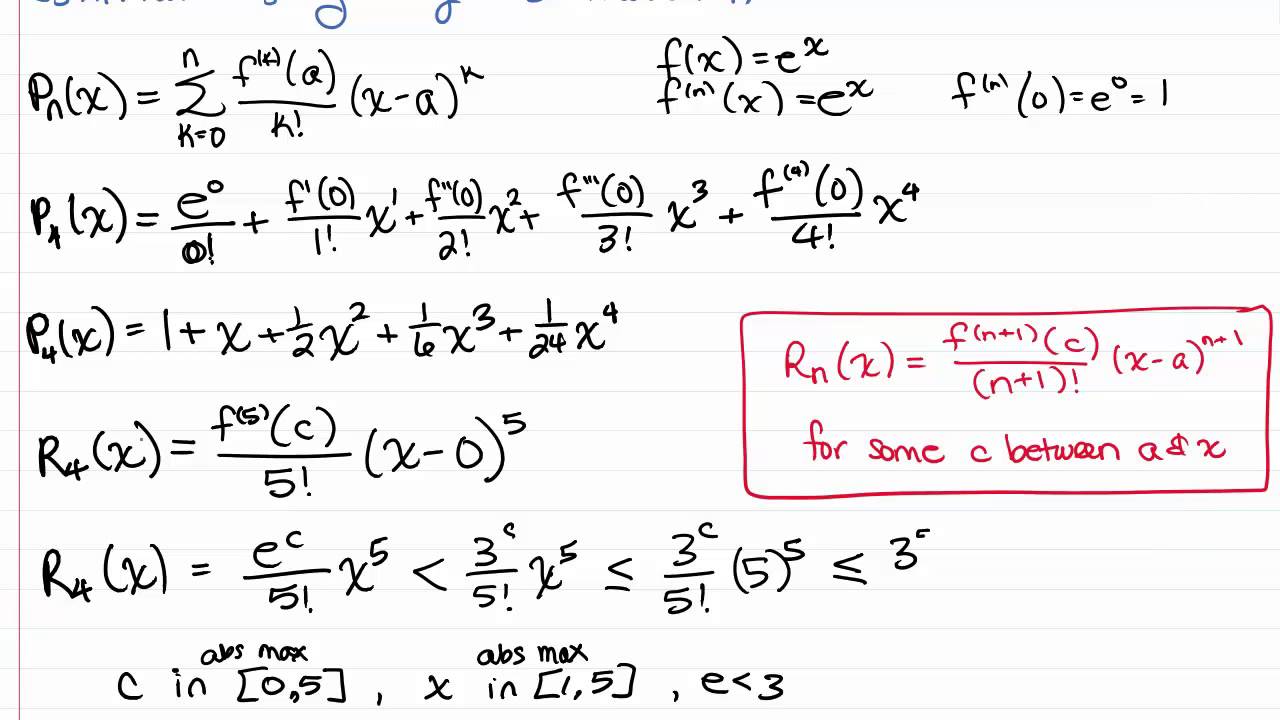 Pₙ(x) = Σ_{k=0}^{n} f^{(k)}(a)/k! (x-a)^k
f(x) = e^x
f^{(n)}(x) = e^x
f^{(n)}(0) = e^0 = 1
P₄(x) = e^0/0! + f'(0)/1! x^1 + f''(0)/2! x^2 + f'''(0)/3! x^3 + f^{(4)}(0)/4! x^4
P₄(x) = 1 + x + 1/2 x^2 + 1/6 x^3 + 1/24 x^4
Rₙ(x) = f^{(n+1)}(c)/(n+1)! (x-a)^{n+1}
for some c between a & x
R₄(x) = f^{(5)}(c)/5! (x-0)^5
R₄(x) = e^c/5! x^5 < 3^c/5! x^5 ≤ 3^c/5! (5)^5 ≤ 3
abs max abs max
c in [0,5] , x in [1,5] , e < 3